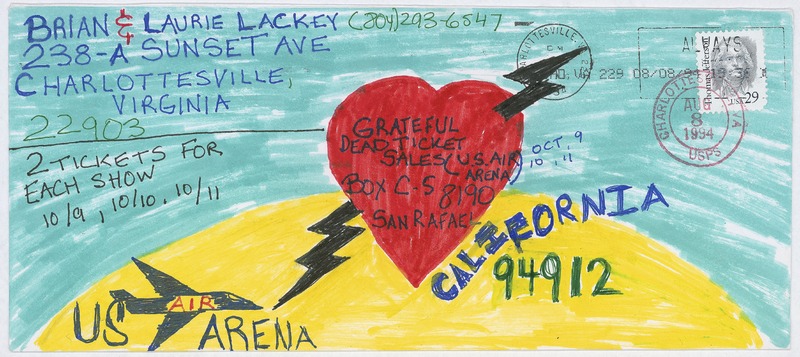 BRIAN & LAURIE LACKEY (804)293-6547
238-A SUNSET AVE
CHARLOTTESVILLE,
VIRGINIA
22903
2 TICKETS FOR
EACH SHOW
10/9, 10/10, 10/11
GRATEFUL
DEAD TICKET
SALES (U.S. AIR
ARENA)
OCT. 9
10, 11
BOX C-S 8190
SAN RAFAEL
CALIFORNIA
94912
US AIR ARENA
CHARLOTTESVILLE
VA 229 08/08/94
ALWAYS
Thomas Jefferson
USA 29
CHARLOTTESVILLE VA
AUG
8
1994
USPS